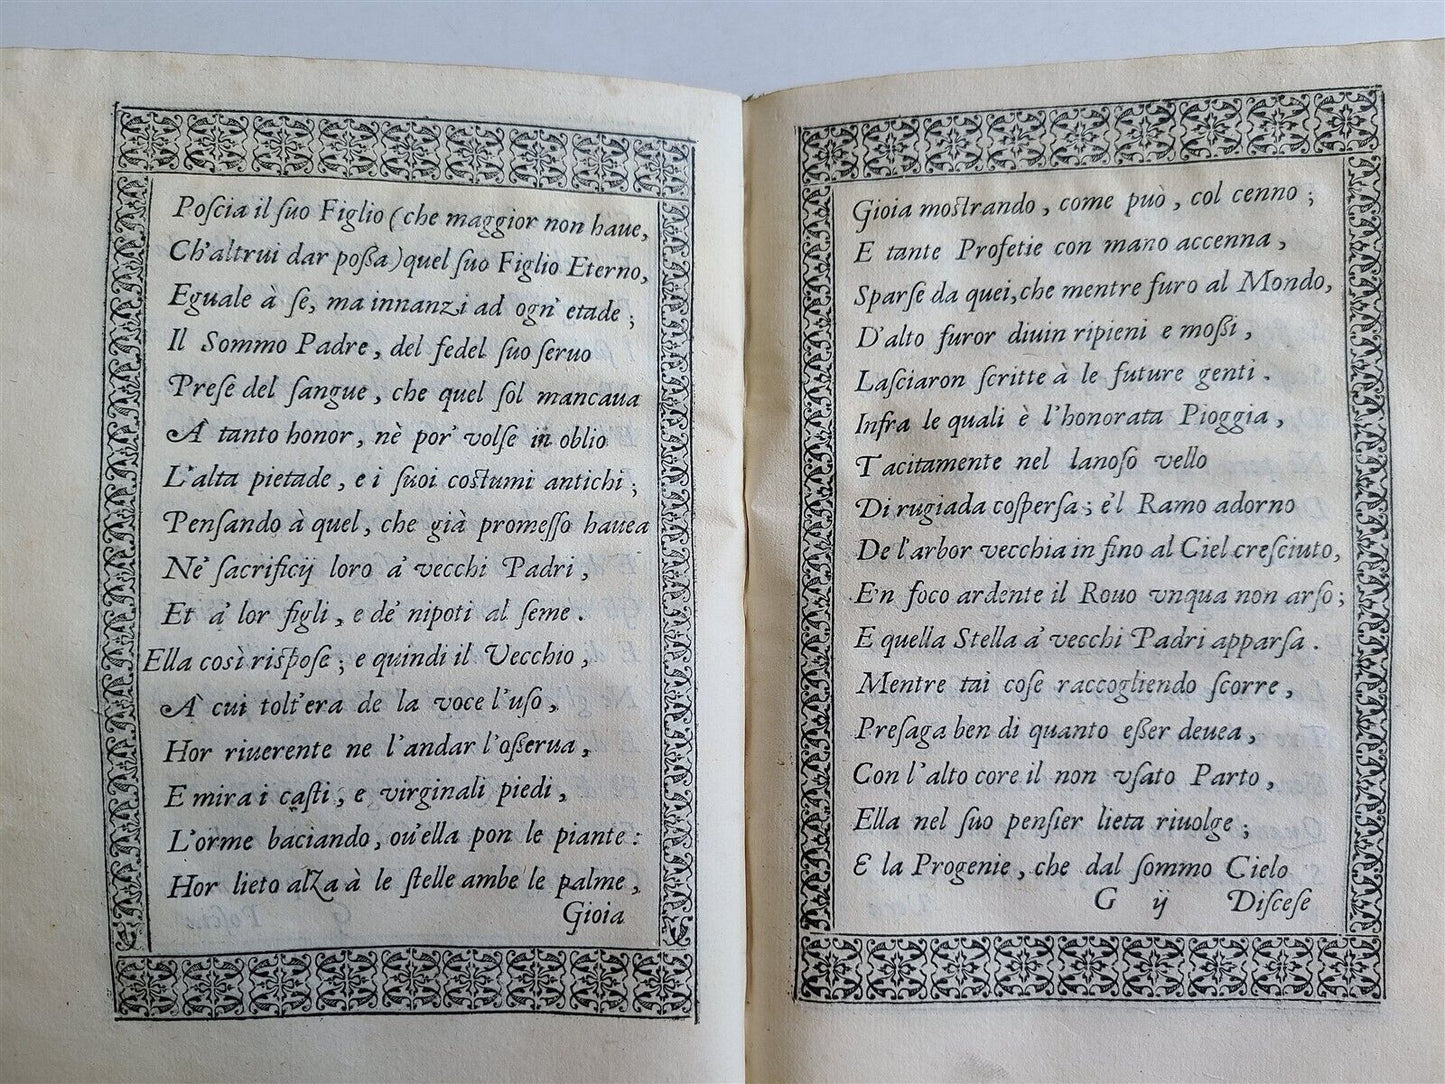 Poſcia il ſuo Figlio (che maggior non haue,
Ch'altrui dar poſſa) quel ſuo Figlio Eterno,
Eguale à ſe, ma innanzi ad ogn' etade ;
Il Sommo Padre, del fedel ſuo ſeruo
Preſe del ſangue, che quel ſol mancaua
A tanto honor, nè por' volſe in oblio
L'alta pietade, e i ſuoi coſtumi antichi ;
Penſando à quel, che già promeſſo hauea
Ne' ſacrificij loro a' vecchi Padri,
Et a' lor figli, e de' nipoti al ſeme.
Ella così riſpoſe ; e quindi il Vecchio,
A cui tolt'era de la voce l'uſo,
Hor riuerente ne l'andar l'oſſerua,
E mira i caſti, e virginali piedi,
L'orme baciando, ou'ella pon le piante :
Hor lieto alza à le ſtelle ambe le palme,
Gioia
Gioia moſtrando, come può, col cenno ;
E tante Profetie con mano accenna,
Sparſe da quei, che mentre furo al Mondo,
D'alto furor diuin ripieni e moſſi,
Laſciaron ſcritte à le future genti.
Infra le quali è l'honorata Pioggia,
Tacitamente nel lanoſo vello
Di rugiada coſperſa ; e'l Ramo adorno
De l'arbor vecchia in fino al Ciel creſciuto,
E'n foco ardente il Rouo vnqua non arſo ;
E quella Stella a' vecchi Padri apparſa.
Mentre tai coſe raccogliendo ſcorre,
Preſaga ben di quanto eſſer deuea,
Con l'alto core il non vſato Parto,
Ella nel ſuo penſier lieta riuolge ;
E la Progenie, che dal ſommo Cielo
G ij Diſceſe